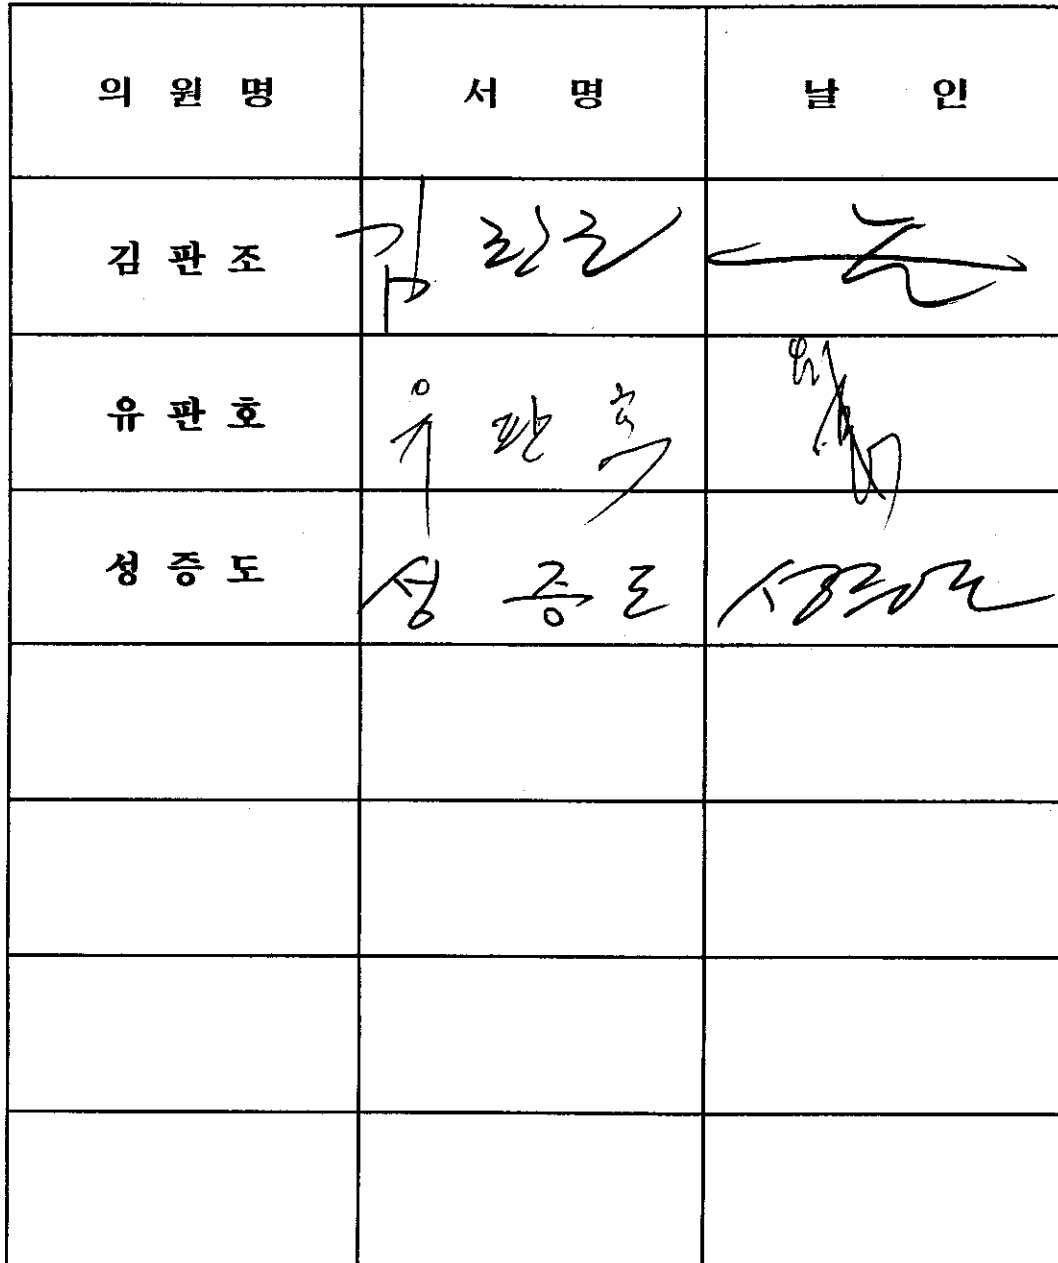 의 원 명 서 명 날 인
김 판 조 김 판 조
유 판 호 유 판 호
성 증 도 성 증 도